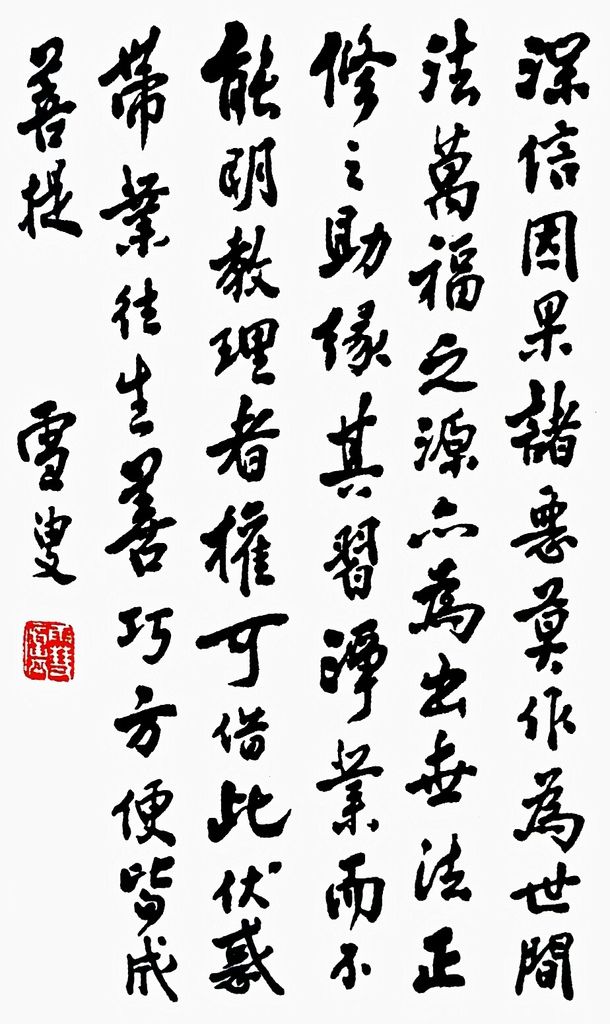 深信因果諸惡莫作為世間
法萬福之源亦為出世法正
修之助緣其習淨業而不
能明教理者權可借此伏惑
帶業往生善巧方便皆成
菩提 雪叟